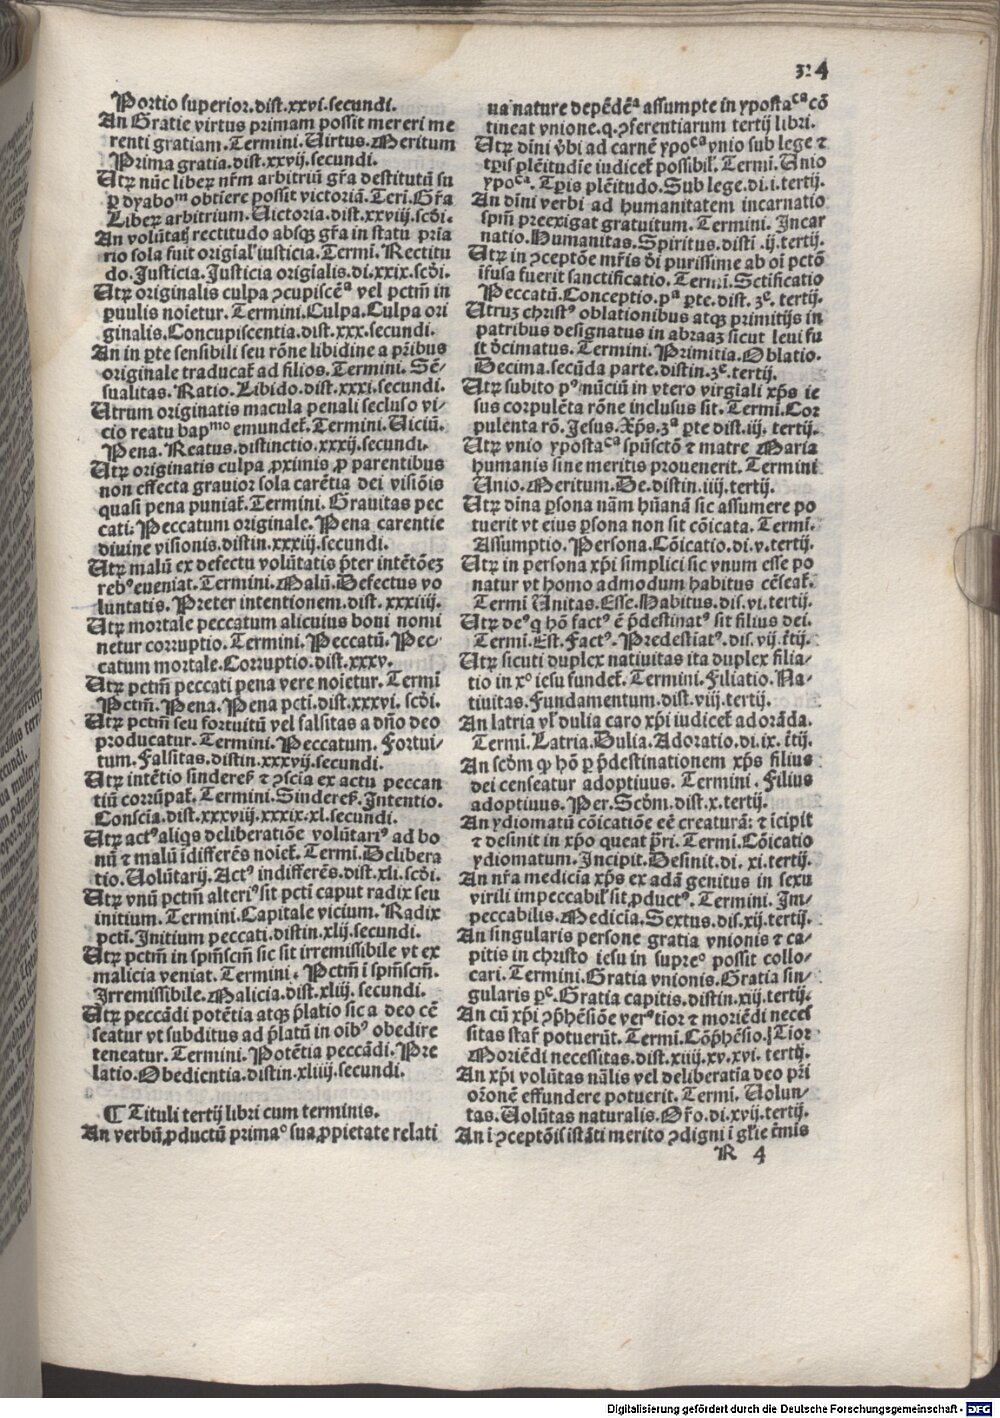 324
Portio superior.dist.xxvi.secundi.
An Gratie virtus primam possit mereri me
renti gratiam.Termini.Virtus.Meritum
Prima gratia.dist.xxvij.secundi.
Utrꝝ nūc liberꝝ nr̄m arbitriū gr̄a destitutū su
ꝑ dyaboᵐ obtiere possit victoriā.Teri.Gr̄a
Liberꝝ arbitrium.Victoria.dist.xxviij.scd̄i.
An volūtatꝭ rectitudo absqꝫ gr̄a in statu pria
rio sola fuit origial' iusticia.Termi.Rectitu
do.Iusticia.Iusticia origialis.di.xxix.scd̄i.
Utrꝝ originalis culpa ꝯcupiscēᵃ vel pctm̄ in
ꝑuulis noietur.Termini.Culpa.Culpa ori
ginalis.Concupiscentia.dist.xxx.secundi.
An in ꝑte sensibili seu rōne libidine a pr̄ibus
originale traducat̄ ad filios.Termini.Sē⸗
sualitas.Ratio.Libido.dist.xxxi.secundi.
Utrum originatis macula penali secluso vi⸗
cio reatu bapᵐᵒ emundet̄.Termini.Viciū.
Pena.Reatus.distinctio.xxxij.secundi.
Utrꝝ originatis culpa ꝓximis ꝓ parentibus
non effecta grauior sola carētia dei visiōis
quasi pena puniat̄.Termini.Grauitas pec
cati.Peccatum originale.Pena carentie
diuine visionis.distin.xxxiij.secundi.
Utrꝝ malū ex defectu volūtatis p̄ter intētōeꝫ
rebꝰ eueniat.Termini.Malū.Defectus vo
luntatis.Preter intentionem.dist.xxxiiij.
Utrꝝ mortale peccatum alicuius boni nomi
netur corruptio.Termini.Peccatū.Pec⸗
catum mortale.Corruptio.dist.xxxv.
Utrꝝ pctm̄ peccati pena vere noietur.Termi
Pctm̄.Pena.Pena pcti.dist.xxxvi.scd̄i.
Utrꝝ pctm̄ seu fortuitū vel falsitas a dn̄o deo
producatur.Termini.Peccatum.Fortui⸗
tum.Falsitas.distin.xxxvij.secundi.
Utrꝝ intētio sindereſ̄ ⁊ ꝯscia ex actu peccan
tiū corrūpat̄.Termini.Sindereſ̄.Intentio.
Conscia.dist.xxxviij.xxxix.xl.secundi.
Utrꝝ actꝰ aliqs deliberatiōe volūtariꝰ ad bo
nū ⁊ malū idifferēs noiet̄.Termi.Delibera
tio.Volūtarij.Actꝰ indifferēs.dist.xli.scd̄i.
Utrꝝ vnū pctm̄ alteriꝰ sit pcti caput radix seu
initium.Termini.Capitale vicium.Radix
pcti.Initium peccati.distin.xlij.secundi.
Utrꝝ pctm̄ in spm̄scm̄ sic sit irremissibile vt ex
malicia veniat.Termini.Pctm̄ ī spm̄scm̄.
Irremissibile.Malicia.dist.xliij.secundi.
Utrꝝ peccādi potētia atqꝫ p̄latio sic a deo cē
seatur vt subditus ad p̄latū in oibꝰ obedire
teneatur.Termini.Potētia peccādi.Pre
latio.Obedientia.distin.xliiij.secundi.
¶ Tituli tertij libri cum terminis.
An verbū ꝓductū primaᵒ sua ꝓpietate relati
ua nature depēdēᵃ assumpte in ypostaᶜᵃ cō
tineat vnione.q.ꝯferentiarum tertij libri.
Utrꝝ dīni v̄bi ad carnē ypoᶜᵃ vnio sub lege ⁊
tp̄is plētitudie iudicet̄ possibil'.Termi.Unio
ypoᶜᵃ.Tp̄is plētitudo.Sub lege.di.i.tertij.
An dīni verbi ad humanitatem incarnatio
spm̄ preexigat gratuitum.Termini.Incar
natio.Humanitas.Spiritus.disti.ij.tertij.
Utrꝝ in ꝯceptōe mr̄is d̄i purissime ab oī pctō
īfusa fuerit sanctificatio.Termi.Sctificatio
Peccatū.Conceptio.pᵃ ꝑte.dist.3ᶜ.tertij.
Utruꝫ christꝰ oblationibus atqꝫ primitijs in
patribus designatus in abraaꝫ sicut leui fu
it d̄cimatus.Termini.Primitia.Oblatio.
Decima.secūda parte.distin.3ᶜ.tertij.
Utrꝝ subito pꝰ nūciū in vtero virgiali xp̄s ie
sus corpulēta rōne inclusus sit.Termi.Cor
pulenta rō.Iesus.Xp̄s.3ᵃ ꝑte dist.iij.tertij.
Utrꝝ vnio ypostaᶜᵃ spūsctō ⁊ matre Maria
humanis sine meritis prouenerit.Termini
Unio.Meritum.De.distin.iiij.tertij.
Utrꝝ dīna ꝑsona nām hūanā sic assumere po
tuerit vt eius ꝑsona non sit cōicata.Termi.
Assumptio.Persona.Cōicatio.di.v.tertij.
Utrꝝ in persona xp̄i simplici sic vnum esse po
natur vt homo admodum habitus cēseat̄.
Termi Unitas.Esse.Habitus.dis.vi.tertij.
Utrꝝ deꝰ q hō factꝰ ē p̄destinatꝰ sit filius dei.
Termi.Est.Factꝰ.Predestiatꝰ.dis.vij.t̄tij.
Utrꝝ sicuti duplex natiuitas ita duplex filia⸗
tio in x° iesu fundet̄.Termini.Filiatio.Na⸗
tiuitas.Fundamentum.dist.viij.tertij.
An latria vl' dulia caro xp̄i iudicet̄ adorāda.
Termi.Latria.Dulia.Adoratio.di.ix.t̄tij.
An scd̄m ꝙ hō ꝑ p̄destinationem xp̄s filius
dei censeatur adoptiuus.Termini.Filius
adoptiuus.Per.Scd̄m.dist.x.tertij.
An ydiomatū cōicatiōe eē creaturā: ⁊ icipit
⁊ desinit in xp̄o queat p̄ri.Termi.Cōicatio
ydiomatum.Incipit.Desinit.di.xi.tertij.
An nr̄a medicia xp̄s ex adā genitus in sexu
virili impeccabil' sit ꝓductꝰ.Termini.Im⸗
peccabilis.Medicia.Sextus.dis.xij.tertij.
An singularis persone gratia vnionis ⁊ ca⸗
pitis in christo iesu in supreᵒ possit collo⸗
cari.Termini.Gratia vnionis.Gratia sin⸗
gularis pᶜ.Gratia capitis.distin.xiij.tertij.
An cū xp̄i ꝯp̄hēsiōe verꝰ tior ⁊ moriēdi neces
sitas stat̄ potuerūt.Termi.Cōp̄hēsio.Tior
Moriēdi necessitas.dist.xiiij.xv.xvi.tertij.
An xp̄i volūtas nālis vel deliberatia deo pr̄i
orōnē effundere potuerit.Termi.Volun⸗
tas.Volūtas naturalis.Or̄o.di.xvij.tertij.
An ī ꝯceptōis istāti merito ꝯdigni ī gl'ie t̄mis
R 4
Digitalisierung gefördert durch die Deutsche Forschungsgemeinschaft - DFG